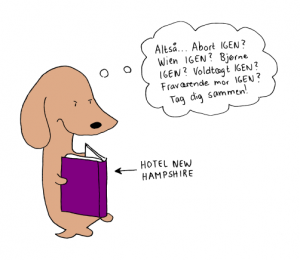 Altså... Abort IGEN?
Wien IGEN? Bjørne
IGEN? Voldtagt IGEN?
Fraværende mor IGEN?
Tag dig sammen!
HOTEL NEW
HAMPSHIRE